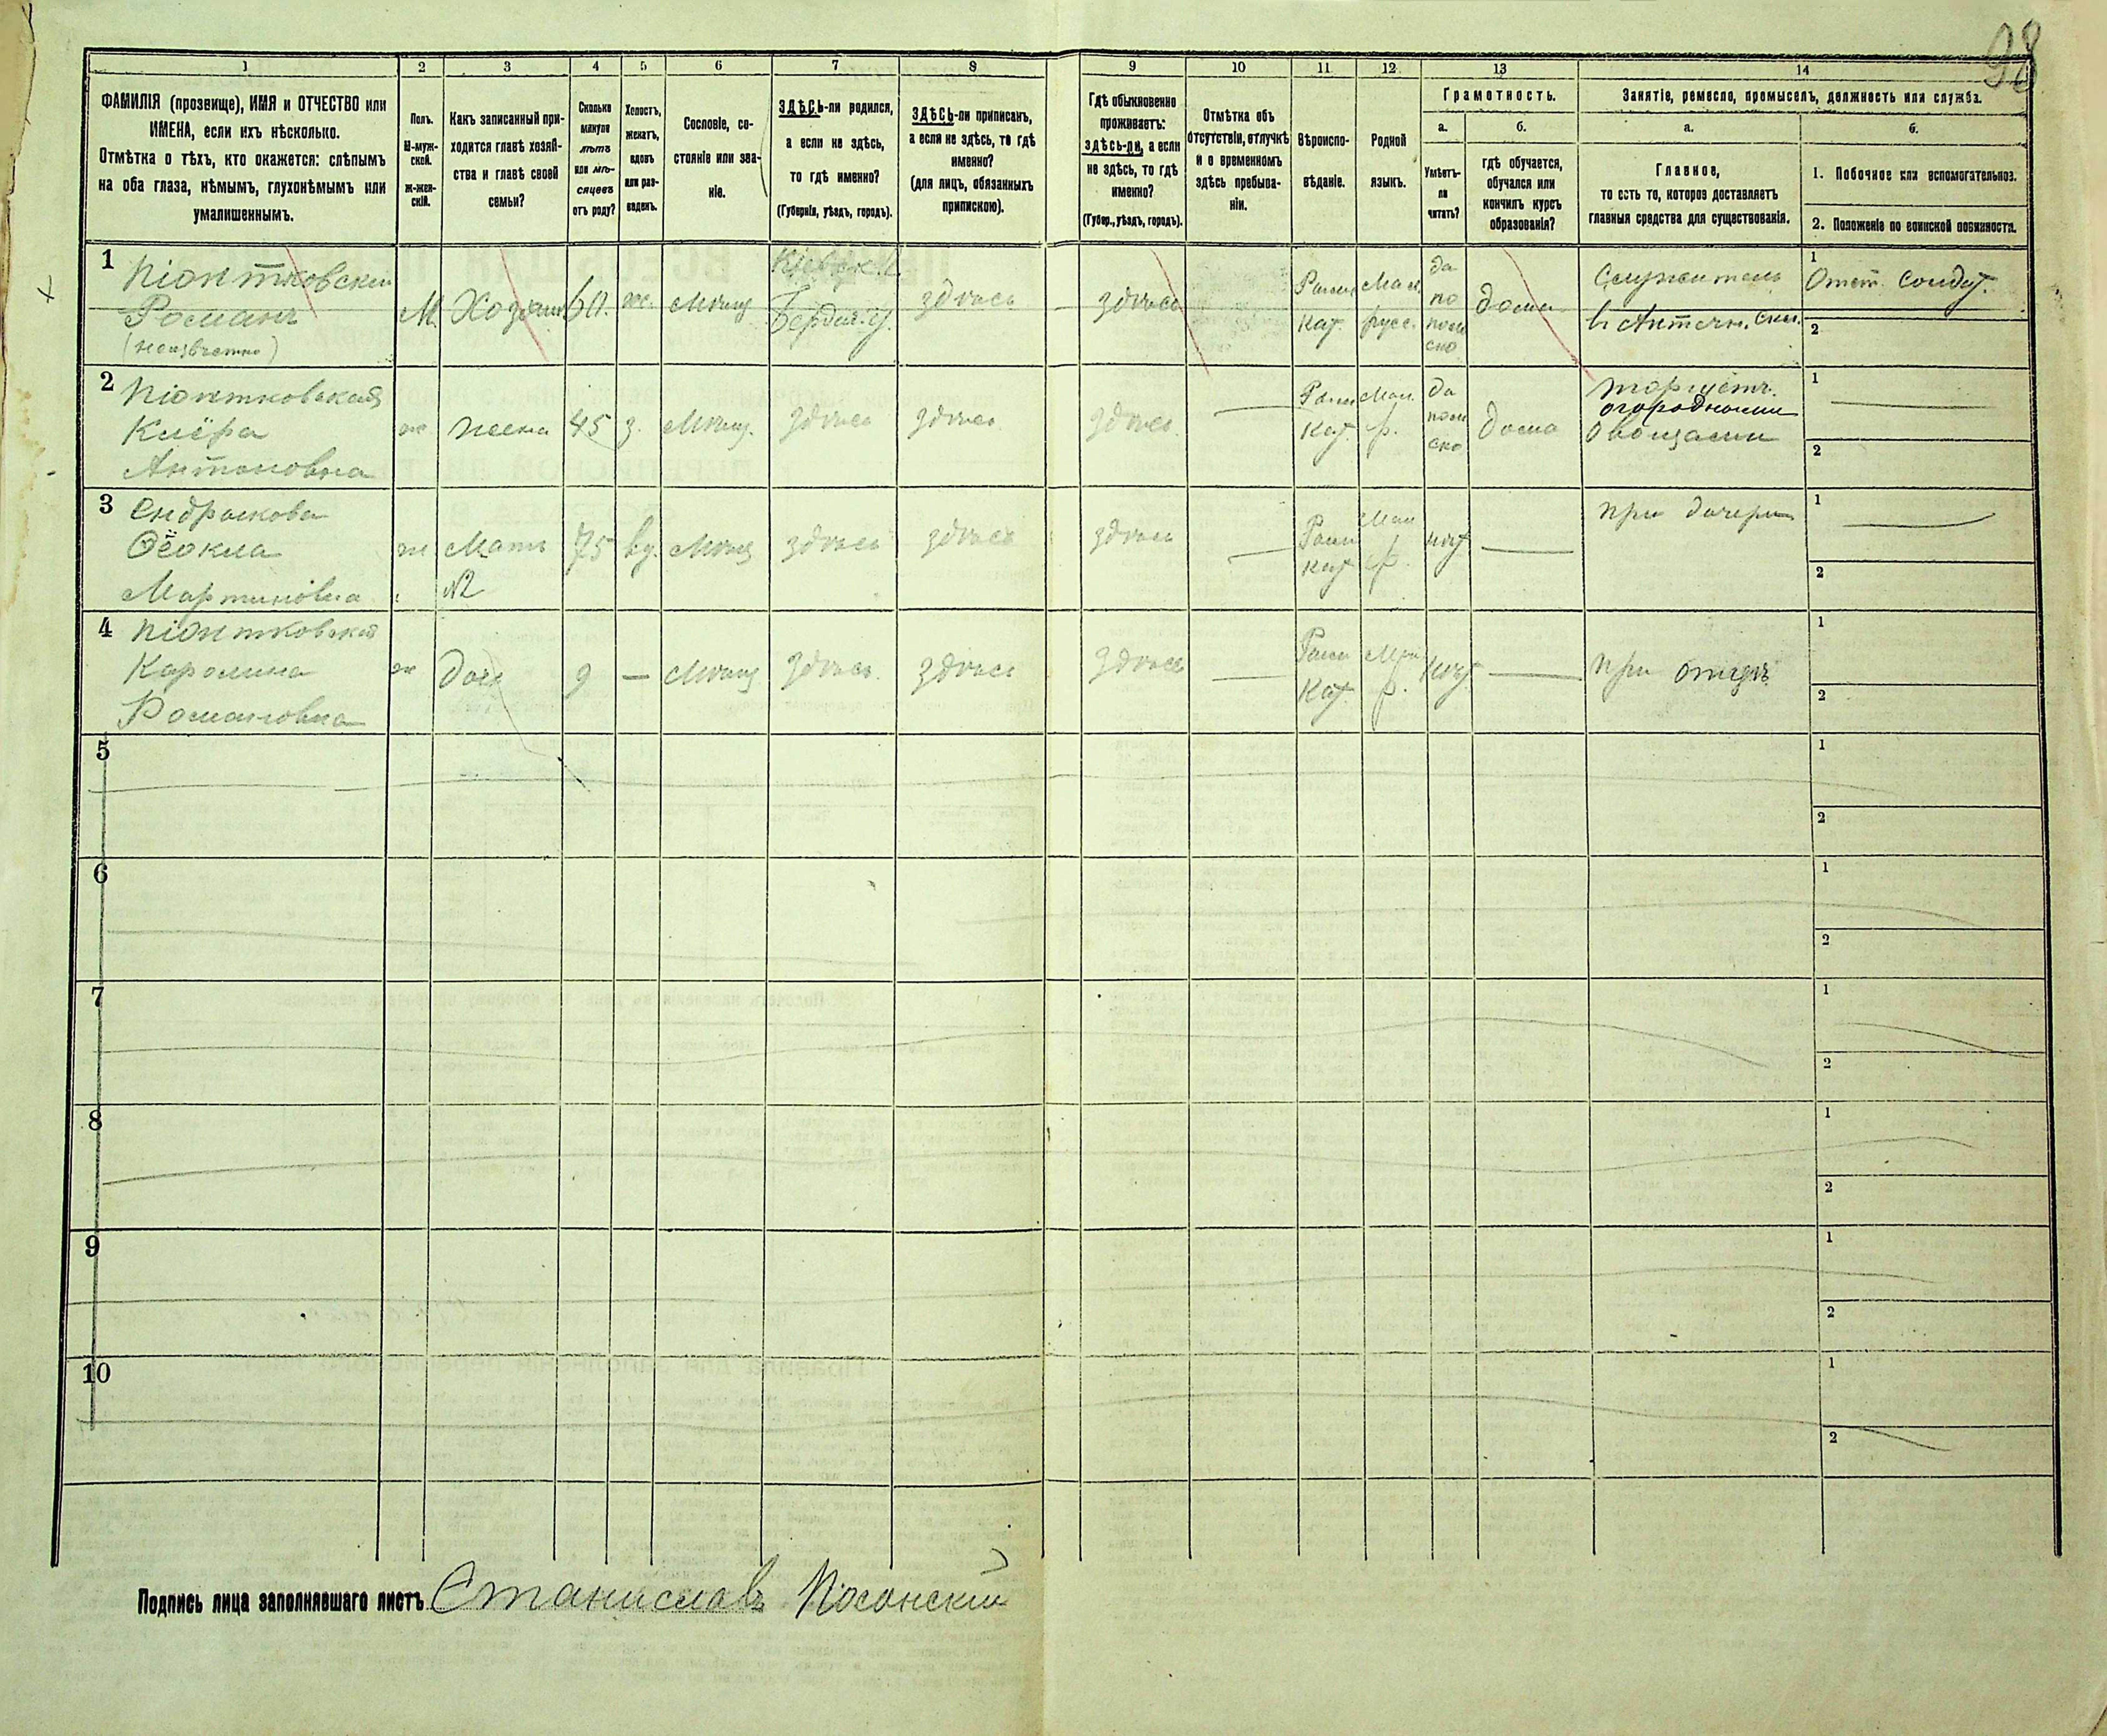 98
1 2 3 4 5 6 7 8 9 10 11 12 13 14
ФАМИЛІЯ (прозвище), ИМЯ и ОТЧЕСТВО или
ИМЕНА, если ихъ нѣсколько.
Отмѣтка о тѣхъ, кто окажется: слѣпымъ
на оба глаза, нѣмымъ, глухонѣмымъ или
умалишеннымъ.
Полъ.
М-муж-
ской.
Ж-жен-
скій.
Какъ записанный при-
ходится главѣ хозяй-
ства и главѣ своей
семьи?
Сколько
минуло
лѣтъ
или мѣ-
сяцевъ
отъ роду?
Холостъ,
женатъ,
вдовъ
или раз-
веденъ.
Сословіе, со-
стояніе или зва-
ніе.
ЗДѢСЬ-ли родился,
а если не здѣсь,
то гдѣ именно?
(Губернія, уѣздъ, городъ).
ЗДѢСЬ-ли приписанъ,
а если не здѣсь, то гдѣ
именно?
(для лицъ, обязанныхъ
припискою).
Гдѣ обыкновенно
проживаетъ:
здѣсь-ли, а если
не здѣсь, то гдѣ
именно?
(Губер., уѣздъ, городъ).
Отмѣтка объ
отсутствіи, отлучкѣ
и о временномъ
здѣсь пребыва-
ніи.
Вѣроиспо-
вѣданіе.
Родной
языкъ.
Грамотность.
а.
Умѣетъ-
ли
читать?
б.
гдѣ обучается,
обучался или
кончилъ курсъ
образованія?
Занятіе, ремесло, промыселъ, должность или служба.
а.
Главное,
то есть то, которое доставляетъ
главныя средства для существованія.
б.
1. Побочное или вспомогательное.
2. Положеніе по воинской повинности.
1
Піонтковскій
Романъ
(неизвѣстно)
М. Хозяинъ 60. же. Мѣщ
Кіевск. г.
Бердич. у.
здѣсь
здѣсь
Рим.
Кат.
Мал.
русс.
да
по
поль
ско
дома
Служитель
в Аптечн. скл.
1 Отст. солдат.
2
2
Піонтковская
Клёра
Антоновна
ж жена 45 з. Мѣщ. здѣсь здѣсь
здѣсь
Рим
Кат.
Мал.
р.
да
поль
ско
дома
торгуетъ
огородными
овощами
1
2
3
Ѳёокла
Мартиновна
ж
Мать
№2
75 вд. Мѣщ здѣсь здѣсь
здѣсь
Рим
Кат
Мал
р.
нѣт
при дочери
1
2
4
Піонтковская
Каролина
Романовна
ж Доч 9 — Мѣщ здѣсь здѣсь
здѣсь
Рим
Кат.
Мал
р.
Нѣт
при отцѣ
1
2
5
1
2
6
1
2
7
1
2
8
1
2
9
1
2
10
1
2
Подпись лица заполнявшаго листъ Станиславъ